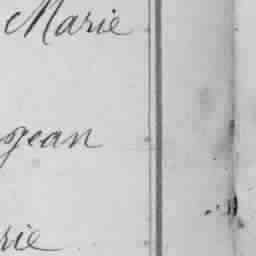 Marie
gean
rie